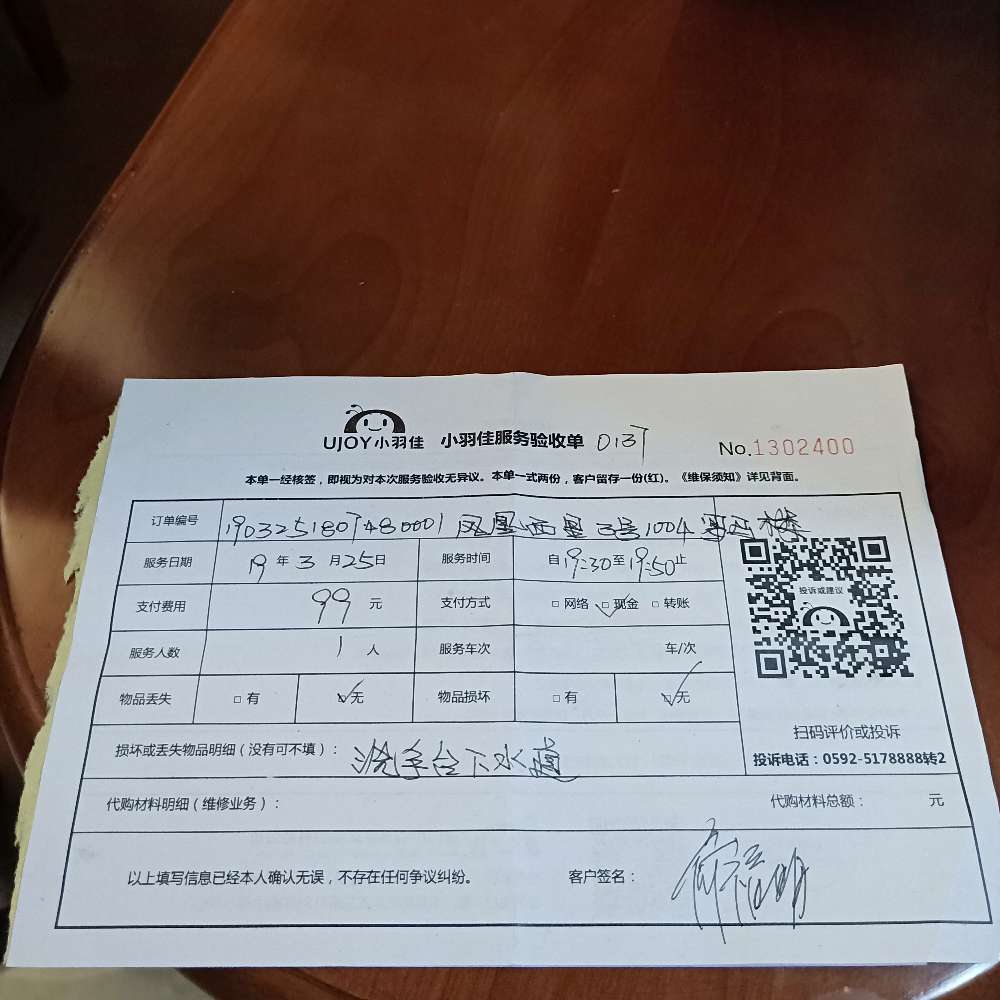 UJOY小羽佳 小羽佳服务验收单 No.1302400
本单一经核签，即视为对本次服务验收无异议。本单一式两份，客户留存一份(红)。《维保须知》详见背面。
订单编号 凤凰西里3号1004
服务日期 19年3月25日 服务时间 自19:30至19:50止
支付费用 99元 支付方式 □网络 □现金 □转账
服务人数 1人 服务车次 车/次
物品丢失 □有 □无 物品损坏 □有 □无
投诉或建议
扫码评价或投诉
投诉电话：0592-5178888转2
损坏或丢失物品明细（没有可不填）：洗手台下水道
代购材料明细（维修业务）： 代购材料总额： 元
以上填写信息已经本人确认无误，不存在任何争议纠纷。 客户签名：